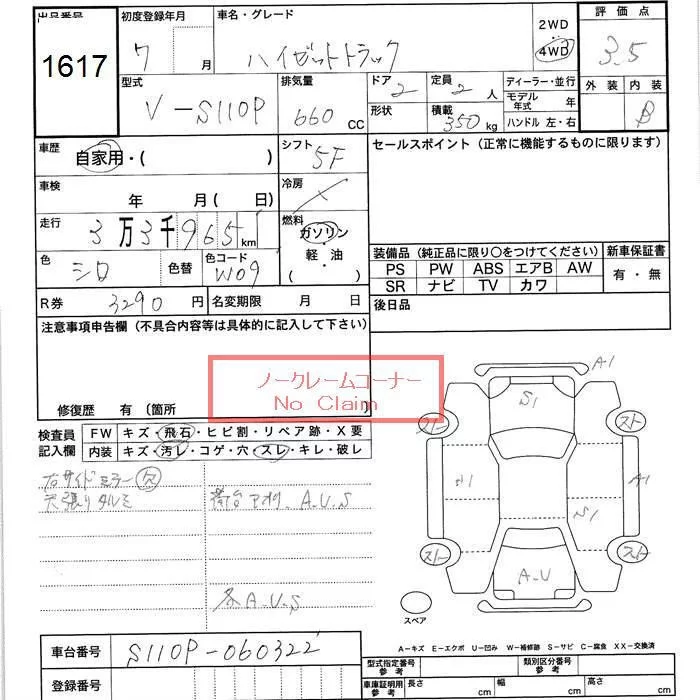 出品番号
1617
初度登録年月
7 月
車名・グレード
ハイゼットトラック
2WD
4WD
評価点
3.5
外装 内装
B
型式
V-S110P
排気量
660 CC
ドア 2
形状
定員 2 人
積載 350 kg
ディーラー・並行
モデル年式 年
ハンドル 左・右
車歴
自家用・( )
シフト
5F
セールスポイント (正常に機能するものに限ります)
車検
年 月( 日)
冷房
×
走行
3万3千965 km
燃料
ガソリン・軽油・( )
色
シロ
色替
色コード
W09
装備品 (純正品に限り○をつけてください)
新車保証書
PS PW ABS エアB AW
有・無
SR ナビ TV カワ
R券 3290 円
名変期限 月 日
後日品
注意事項申告欄 (不具合内容等は具体的に記入して下さい)
ノークレームコーナー
No Claim
修復歴 有 (箇所
検査員記入欄
FW キズ・飛石・ヒビ割・リペア跡・X要
内装 キズ・汚レ・コゲ・穴・スレ・キレ・破レ
右サイドミラー欠
天張りタルミ
荷台 アオリ A.U.S
各A.U.S
A1
S1
スト
スト
A1
S1
A1
スト
スト
A.U
スペア
A-キズ E-エクボ U-凹み W-補修跡 S-サビ C-腐食 XX-交換済
車台番号
S110P-060322
登録番号
型式指定番号 参考
類別区分番号 参考
車庫証明用 参考
長さ cm
幅 cm
高さ cm